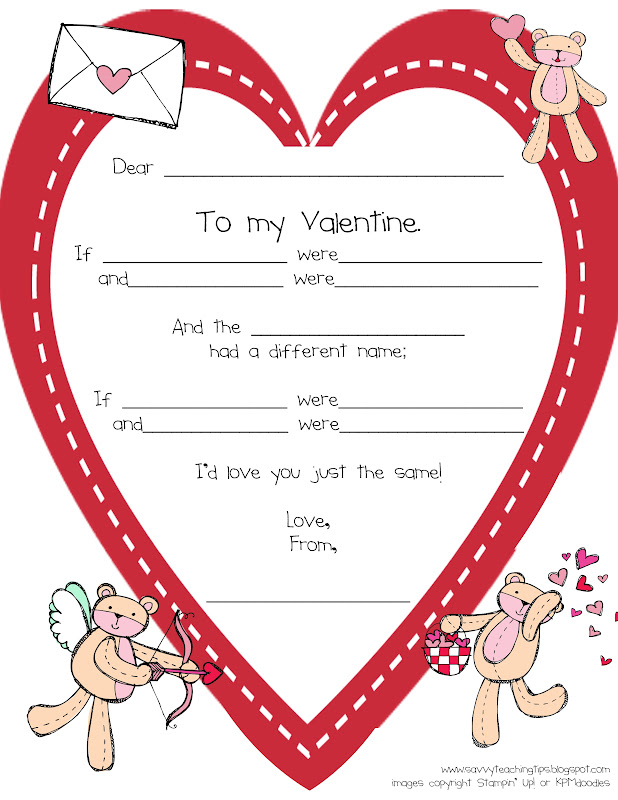 Dear ____________________
To my Valentine.
If ____________ were____________
and____________ were____________
And the ____________
had a different name;
If ____________ were____________
and____________ were____________
I'd love you just the same!
Love,
From,
____________
www.savvyteachingtips.blogspot.com
images copyright Stampin' Up! or KPMdoodles